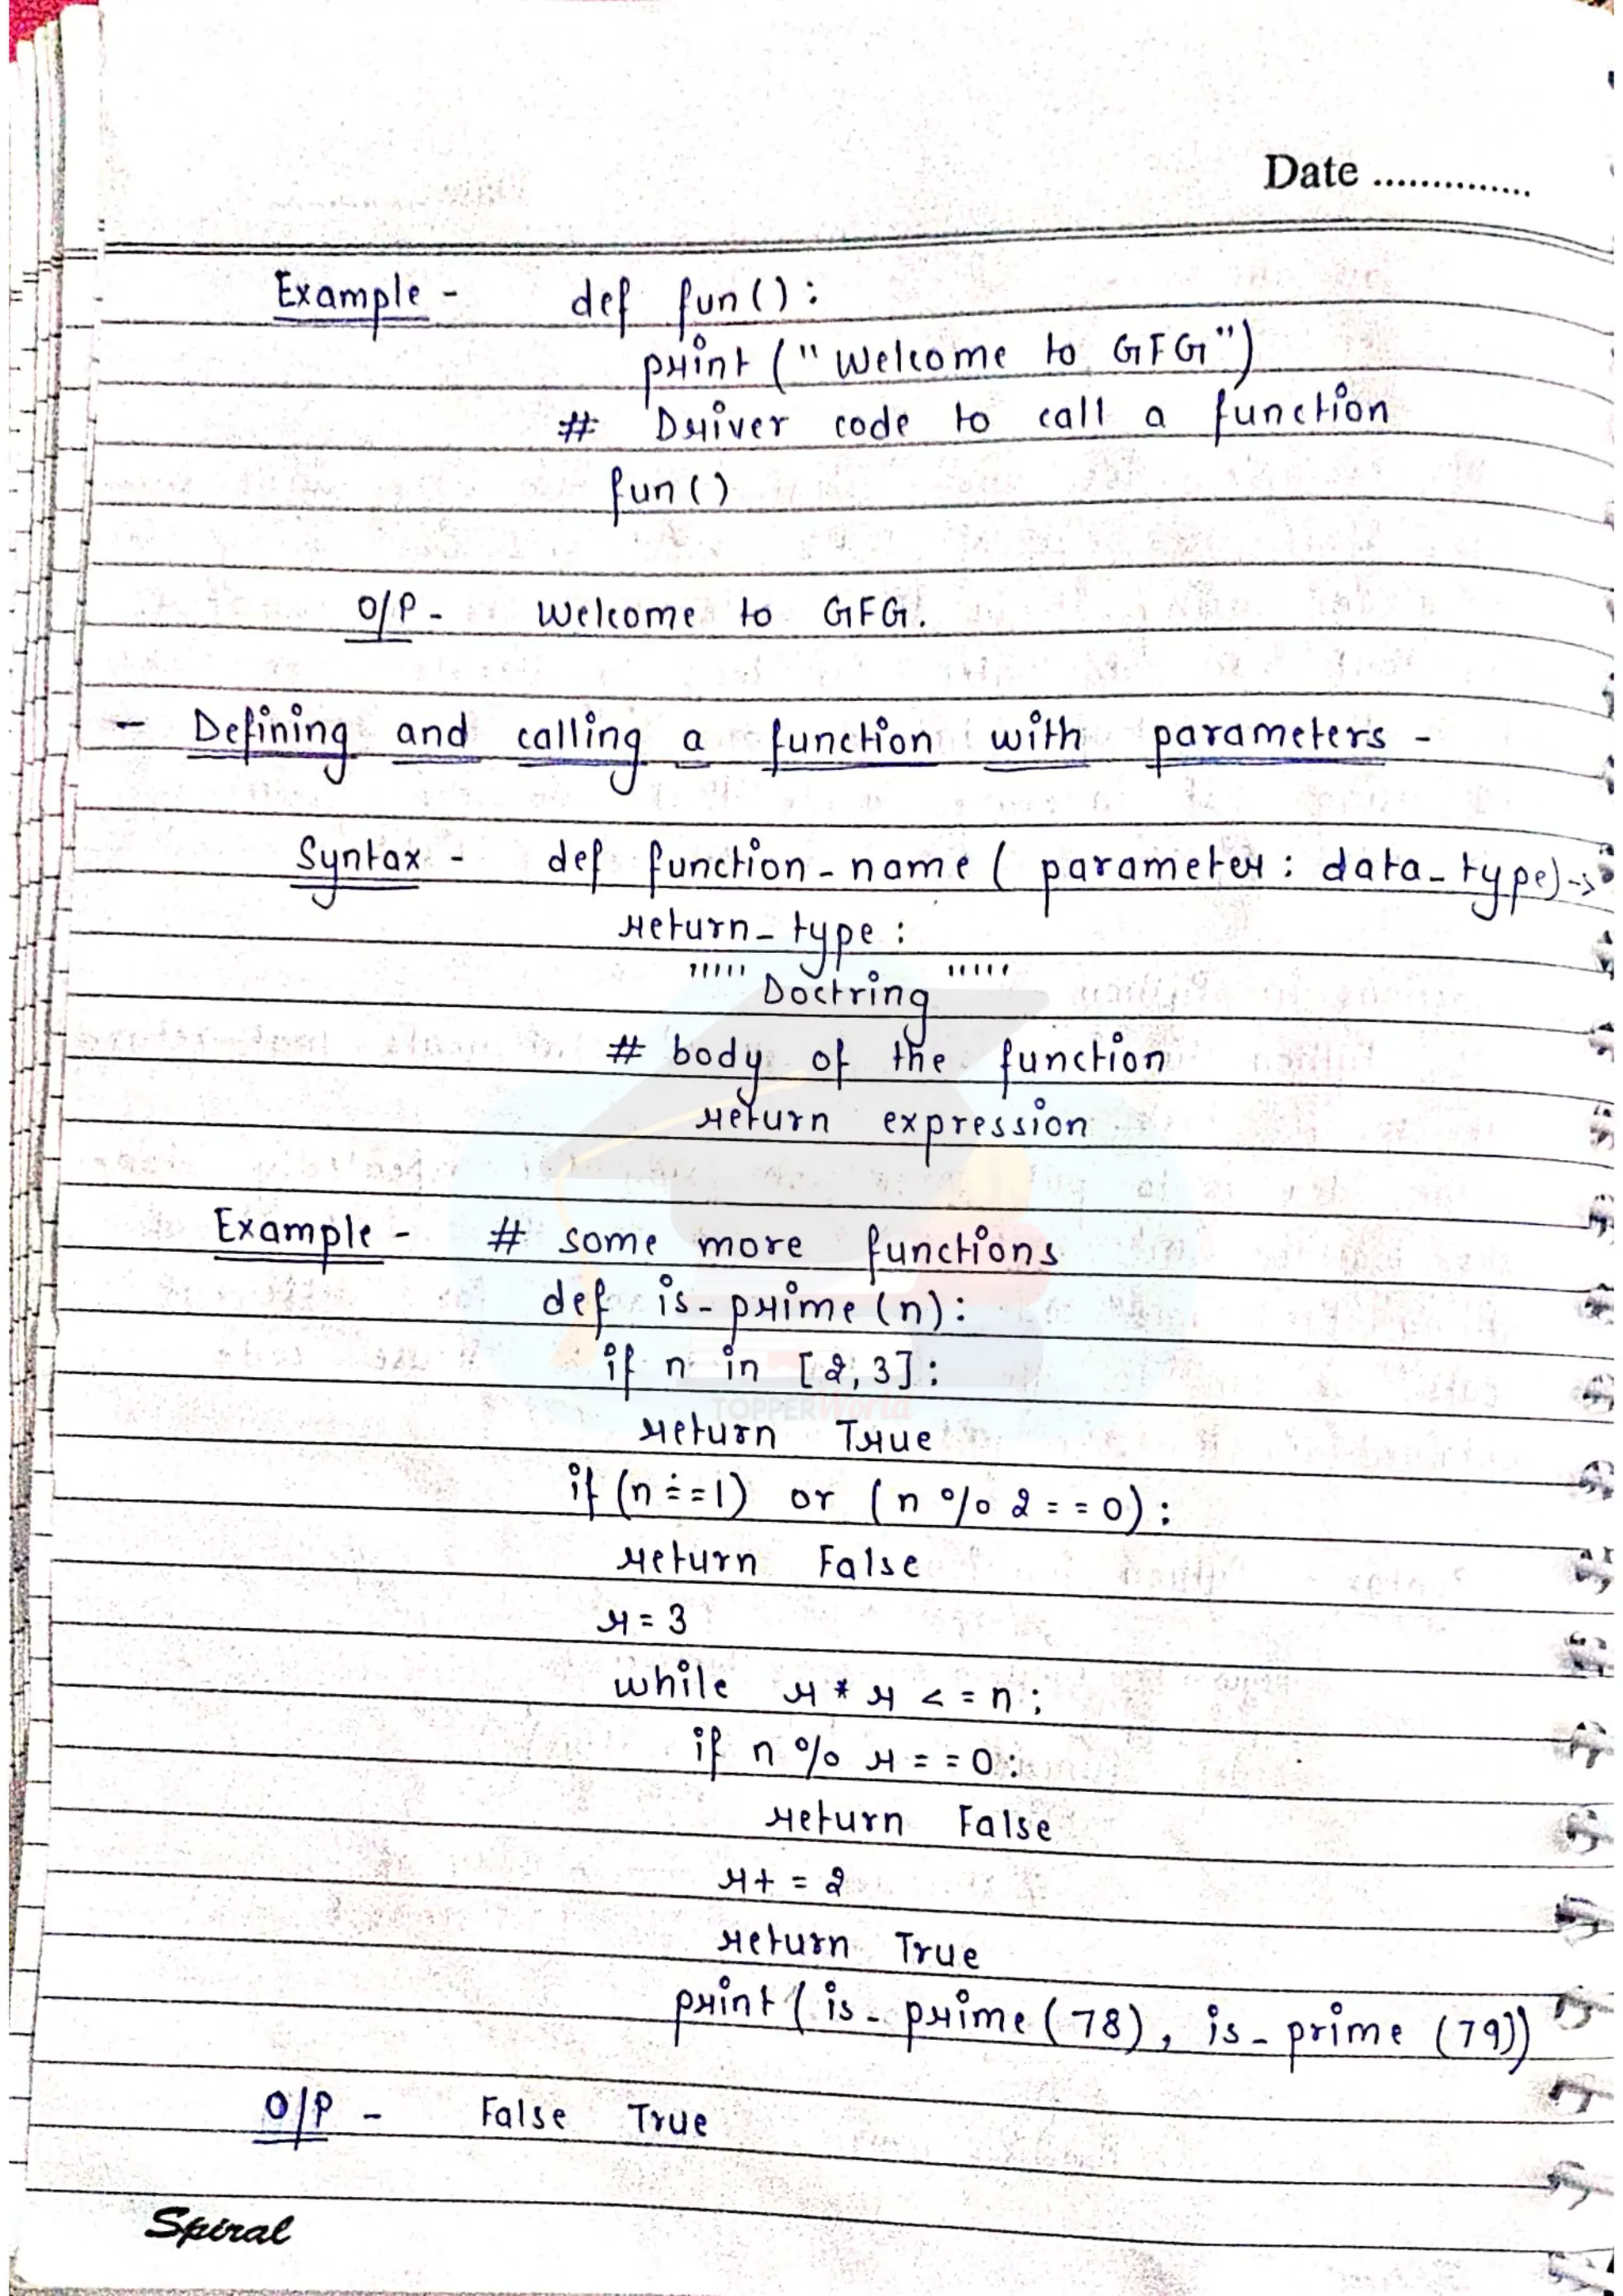 Date ..............
Example - def fun():
print ("Welcome to GFG")
# Driver code to call a function
fun()
O/P - Welcome to GFG.
- Defining and calling a function with parameters -
Syntax - def function_name ( parameter : data_type) ->
return_type :
""""" Doctring """""
# body of the function
return expression
Example - # some more functions
def is_prime (n):
if n in [2, 3]:
return True
if (n == 1) or (n % 2 == 0):
return False
r = 3
while r * r <= n :
if n % r == 0 :
return False
r+ = 2
return True
print ( is_prime (78), is_prime (79))
O/P - False True
TOPPERWorld
Spiral